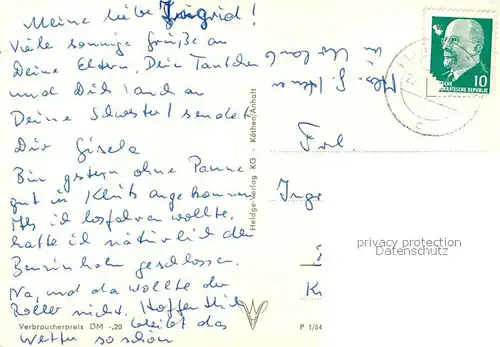 Meine liebe Ingrid!
Viele sonnige Grüße an
Deine Eltern, Dein Tantchen
und Dich und an
Deine Schwester sendet
Dir Gisela
Bin gestern ohne Panne
gut in Klütz angekommen
Als ich losfahren wollte,
hatte ich natürlich den
Benzinhahn geschlossen.
Na, und da wollte der
Roller nicht. Hoffentlich
bleibt das
Wetter so schön
Verbraucherpreis DM -,20
Heldge-Verlag KG - Köthen/Anhalt
P 1/64
Frl.
Ingr
privacy protection
Datenschutz
10
DEUTSCHE DEMOKRATISCHE REPUBLIK